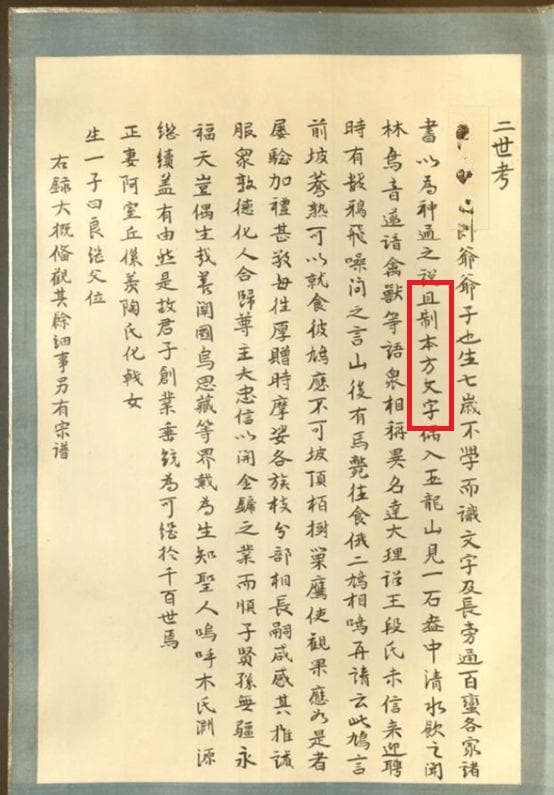 二世考
爺爺子也生七歲不學而識文字及長旁通百蠻各家諸
書以為神通之說且制本方文字偶入玉龍山見一石盎中清水飲之聞
林鳥音遂諳禽獸等語眾相稱異名達大理詔王段氏未信来迎聘
時有鼓鴉飛噪問之言山後有馬斃往食俄二鳩相鳴再請云此鳩言
前坡蕎熟可以就食彼鳩應不可坡頂栢樹巢鷹使觀果應如是者
屡驗加禮甚敦每往厚贈時摩娑各族枝分部相長嗣咸感其推誠
服眾敦德化人合歸尊主大忠信以開全鏞之業而順子賢孫無疆永
福天豈偶生哉善闡國烏思藏等界戴為生知聖人嗚呼木氏淵源
継續盖有由然是故君子創業垂統為可繼於千百世焉
正妻阿室丘係羡陶氏化戟女
生一子曰良継父位
右錄大概俻觀其餘細事另有宗譜